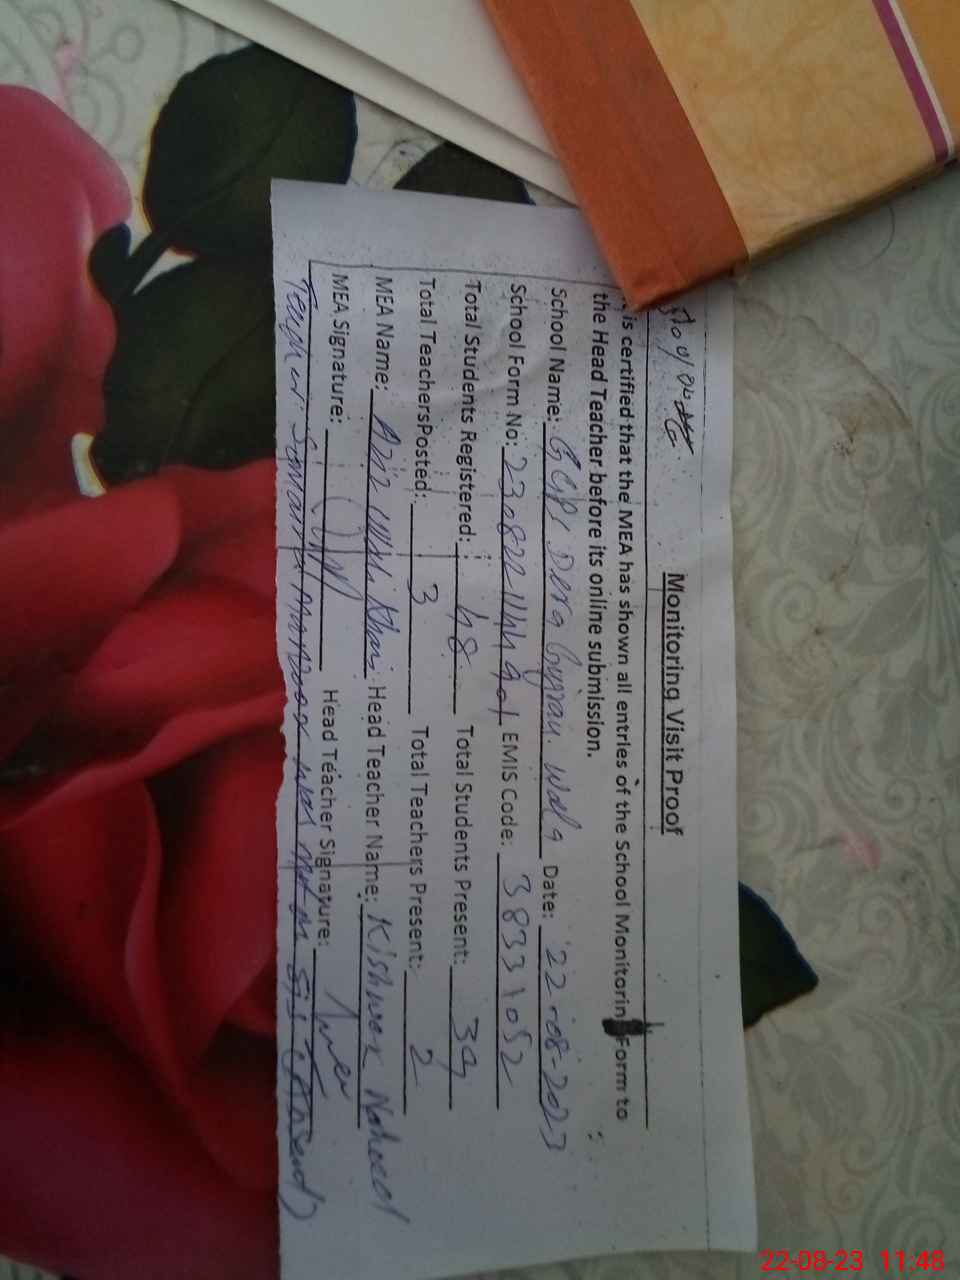 Monitoring Visit Proof
is certified that the MEA has shown all entries of the School Monitorin Form to
the Head Teacher before its online submission.
School Name: GGPS Dera Gujran Wala Date: 22-08-2023
School Form No: EMIS Code: 38331052
Total Students Registered: 48 Total Students Present: 39
Total TeachersPosted: 3 Total Teachers Present: 2
MEA Name: Khan Head Teacher Name: Kishwar Naheed
MEA Signature: Head Teacher Signature:
Teacher: was not on SIS
22-08-23 11:48